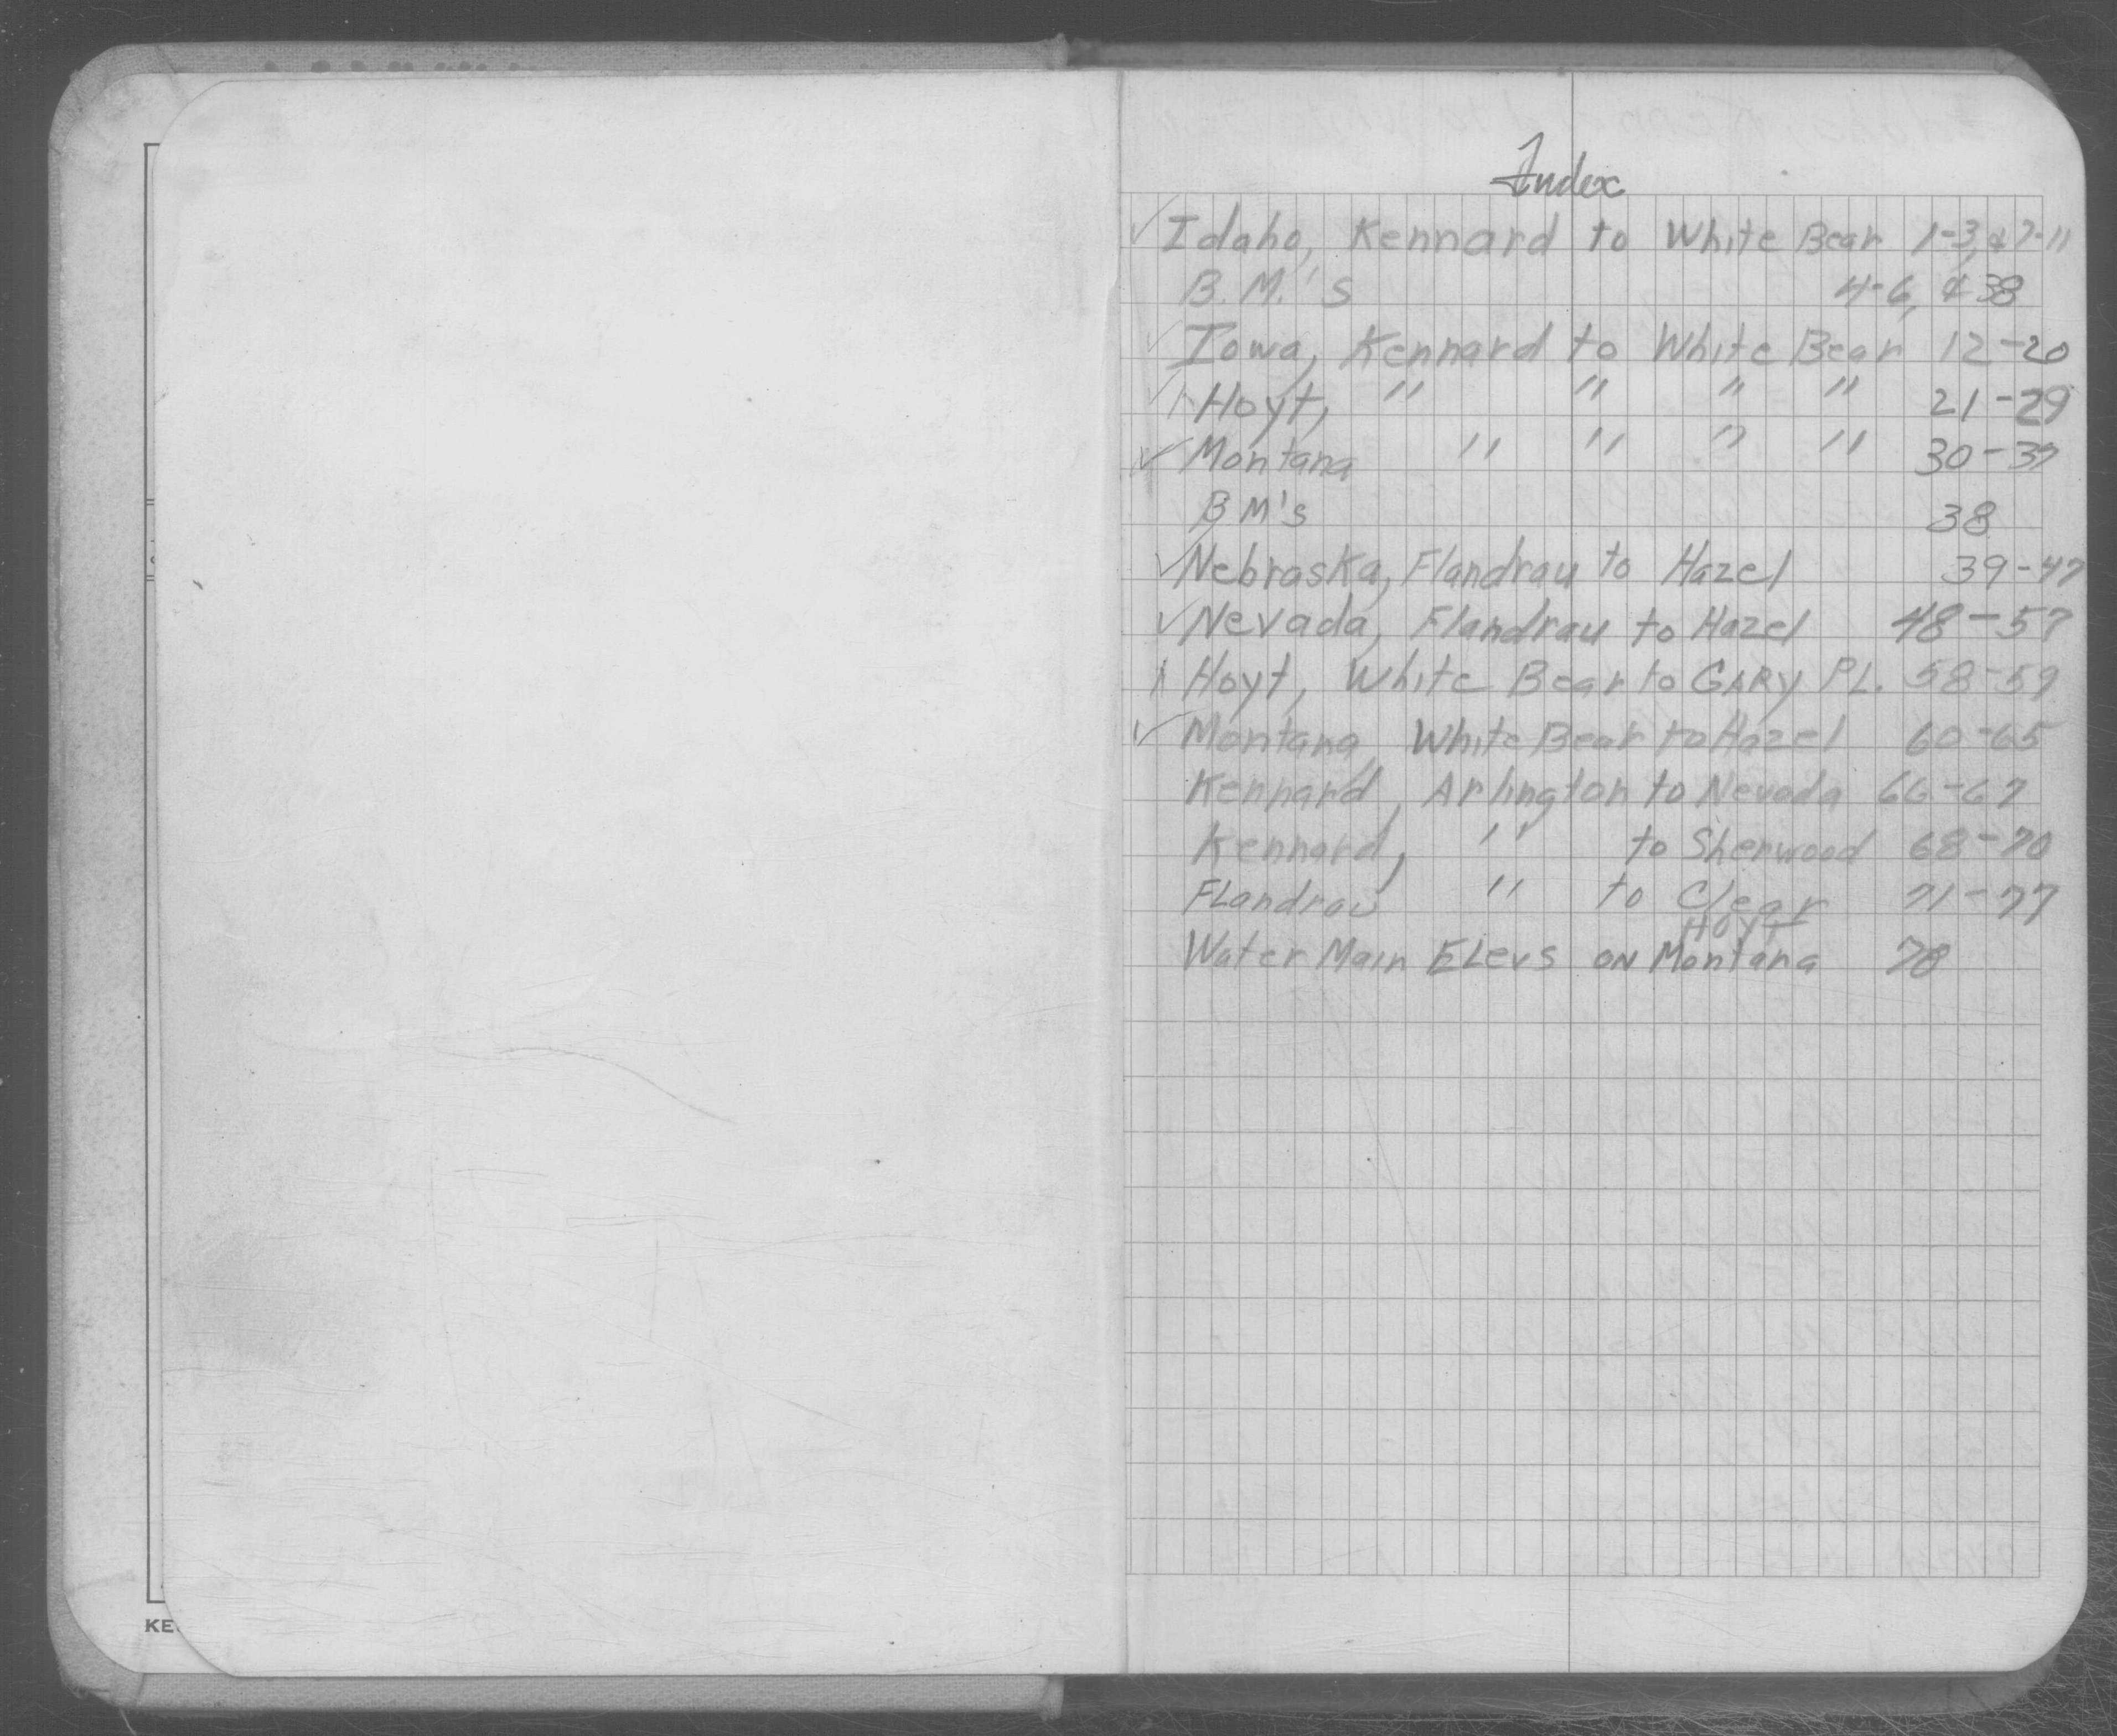 Index
✓ Idaho, Kennard to White Bear 1-3, & 7-11
B.M.'s 4-6, & 38
✓ Iowa, Kennard to White Bear 12-20
Hoyt, " " " " 21-29
✓ Montana " " " " 30-37
BM's 38
✓ Nebraska, Flandrau to Hazel 39-47
✓ Nevada, Flandrau to Hazel 48-57
Hoyt, White Bear to GARY PL. 58-59
✓ Montana, White Bear to Hazel 60-65
Kennard, Arlington to Nevada 66-67
Kennard, " to Sherwood 68-70
FLandrau " to Clear 71-77
HOYT
Water Main ELevs ON Montana 78
KE